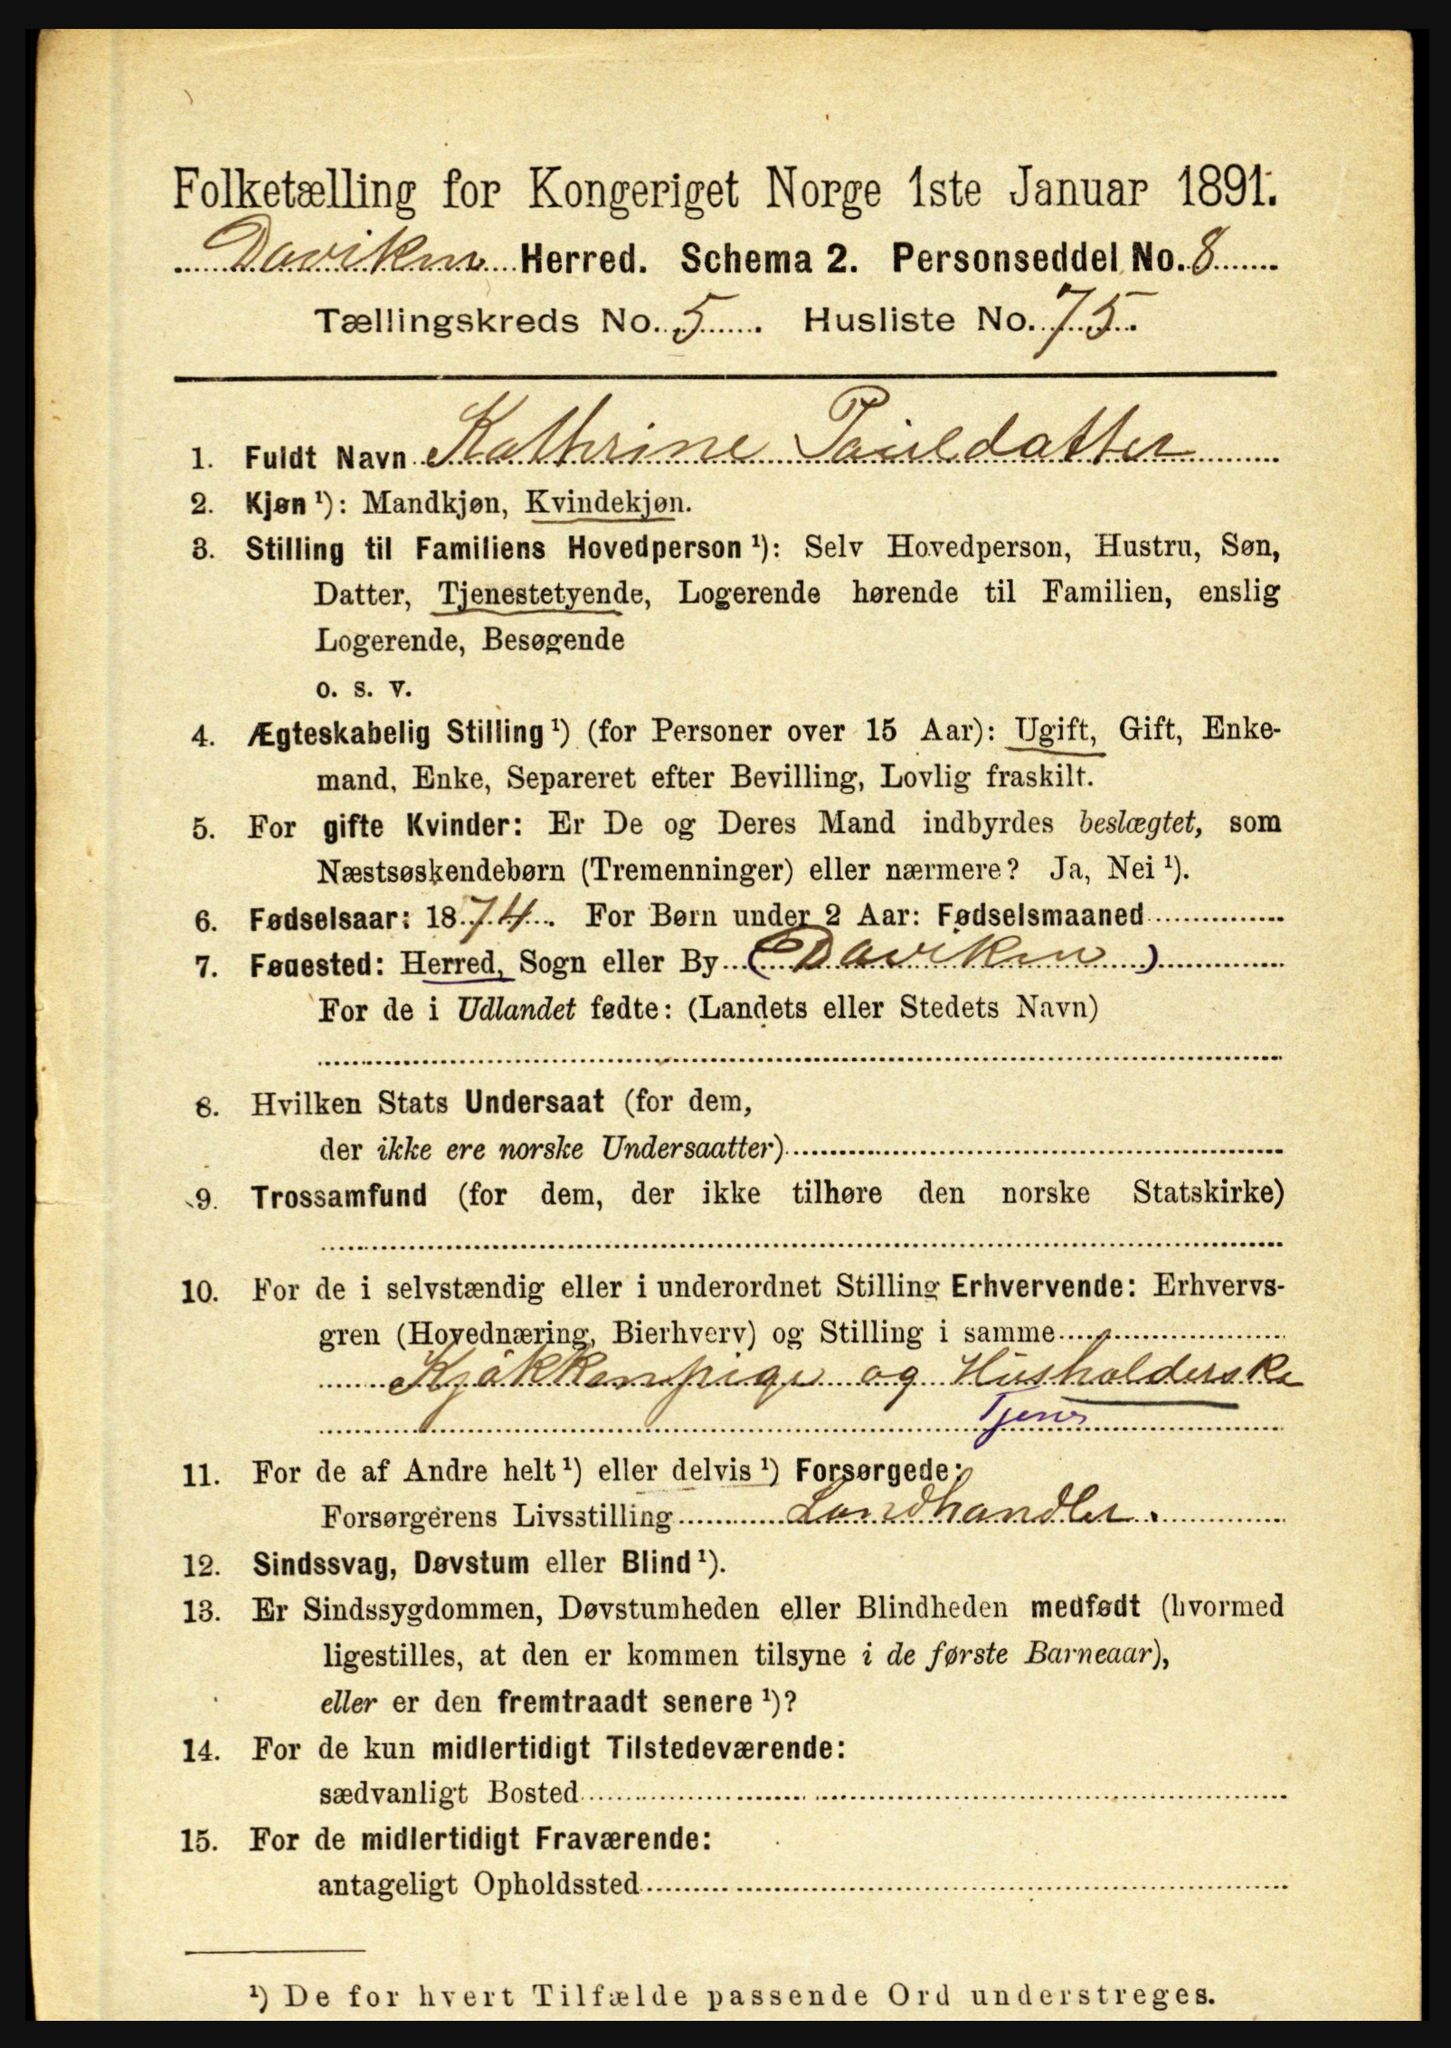 Folketælling for Kongeriget Norge 1ste Januar 1891.
Daviken Herred. Schema 2. Personseddel No. 8
Tællingskreds No. 5. Husliste No. 75.
1. Fuldt Navn Kathrine Pauldatter
2. Kjøn ¹): Mandkjøn, Kvindekjøn.
3. Stilling til Familiens Hovedperson ¹): Selv Hovedperson, Hustru, Søn,
Datter, Tjenestetyende, Logerende hørende til Familien, enslig
Logerende, Besøgende
o. s. v.
4. Ægteskabelig Stilling ¹) (for Personer over 15 Aar): Ugift, Gift, Enke-
mand, Enke, Separeret efter Bevilling, Lovlig fraskilt.
5. For gifte Kvinder: Er De og Deres Mand indbyrdes beslægtet, som
Næstsøskendebørn (Tremenninger) eller nærmere? Ja, Nei ¹).
6. Fødselsaar: 1874. For Børn under 2 Aar: Fødselsmaaned
7. Fødested: Herred, Sogn eller By (Daviken)
For de i Udlandet fødte: (Landets eller Stedets Navn)
8. Hvilken Stats Undersaat (for dem,
der ikke ere norske Undersaatter)
9. Trossamfund (for dem, der ikke tilhøre den norske Statskirke)
10. For de i selvstændig eller i underordnet Stilling Erhvervende: Erhvervs-
gren (Hovednæring, Bierhverv) og Stilling i samme
Kjøkkenpige og Husholderske
Tjener
11. For de af Andre helt ¹) eller delvis ¹) Forsørgede:
Forsørgerens Livsstilling Landhandler.
12. Sindssvag, Døvstum eller Blind ¹).
13. Er Sindssygdommen, Døvstumheden eller Blindheden medfødt (hvormed
ligestilles, at den er kommen tilsyne i de første Barneaar),
eller er den fremtraadt senere ¹)?
14. For de kun midlertidigt Tilstedeværende:
sædvanligt Bosted
15. For de midlertidigt Fraværende:
antageligt Opholdssted
¹) De for hvert Tilfælde passende Ord understreges.